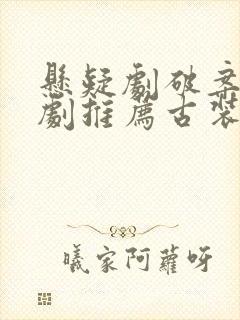 懸疑劇破案
劇推薦古裝
曦家阿蘿呀